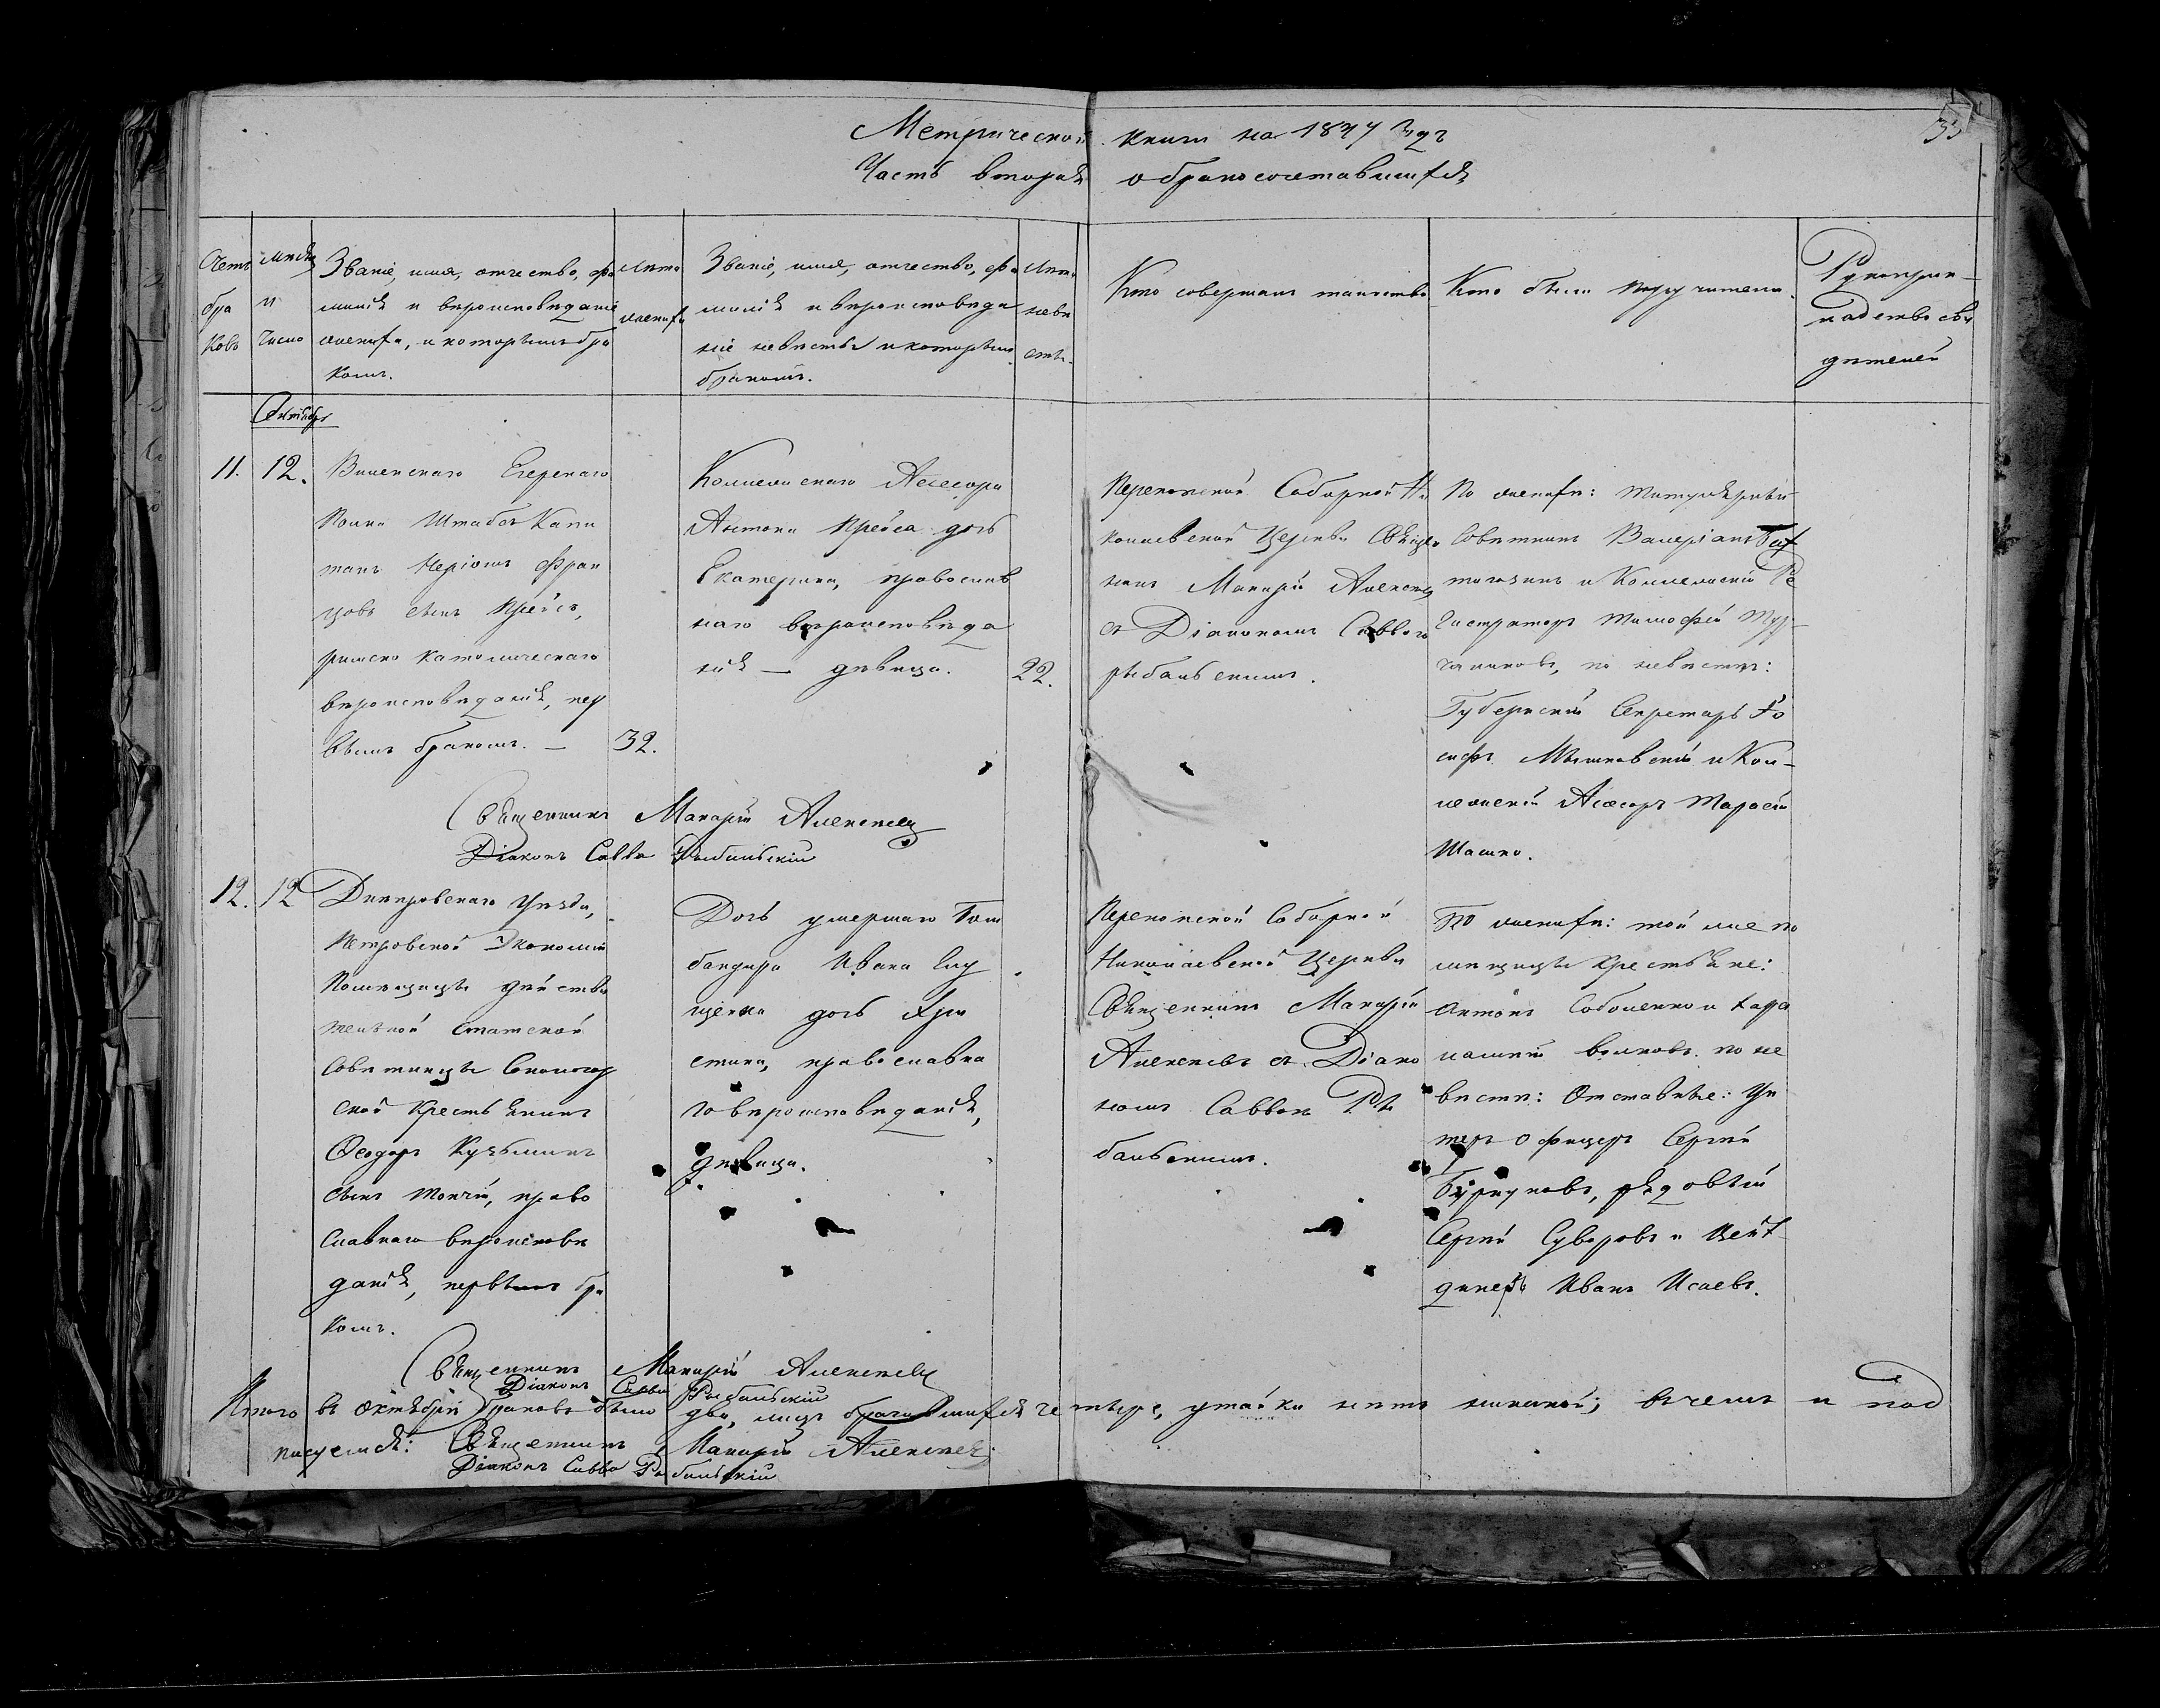 Метрической книги на 1847 годъ
Часть вторая о бракосочетавшихся
33
Счетъ
бра
ковъ
месяцъ
и
число
Званіе, имя, отчество, фа
милія и вѣроисповѣданіе
жениха, и которымъ бра
комъ.
Лѣта
жениха
Званіе, имя, отчество, фа
милія и вѣроисповѣда
ніе невѣсты и которымъ
бракомъ.
Лѣта
невѣ
сты.
Кто совершалъ таинство
Кто были поручители.
Рукоприк
ладство сви
дѣтелей
Октябрь
11. 12.
Виленскаго Егерскаго
Полка Штабсъ Капи
танъ Иеріонъ Фран
цовъ сынъ Крейсъ,
римско католическаго
вѣроисповѣданія, пер
вымъ бракомъ. —
32.
Коллежскаго Асессора
Антона Крейса дочь
Екатерина, православ
наго вѣроисповѣда
нія — дѣвица.
22.
Перекопской Соборной Ни
колаевской Церкви Священ
никъ Макарій Алексѣевъ
съ Діакономъ Саввою
Рыбальскимъ.
По женихѣ: Титулярный
Совѣтникъ Валеріанъ
и Коллежскій Ре
гистраторъ Тимофей
по невѣстѣ:
Губернскій Секретарь Іо
сифъ Мышковскій и Кол-
лежскій Асесоръ Тарасій
Шашко.
Священникъ Макарій Алексѣевъ
Діаконъ Савва Рыбальскій
12. 12
Днепровскаго Уѣзда,
Петровской Экономіи
Помѣщицы дѣйстви
тельной Статской
Совѣтницы
Крестьянинъ
Феодоръ Кузьминъ
сынъ Топчій, право
славнаго вѣроисповѣ
данія, первымъ бра
комъ.
Дочь умершаго Бом
бандира Ивана
дочь Хри
стина, православна
го вѣроисповѣданія,
дѣвица.
Перекопской Соборной
Николаевской Церкви
Священникъ Макарій
Алексѣевъ съ Діако
номъ Саввою Ры
бальскимъ.
По женихѣ: той же по
мѣщицы крестьяне:
Антонъ Соболенко и Хара
лампій Волковъ. по не
вѣстѣ: Отставные: Ун
теръ Офицеръ Сергѣй
Бурдуковъ, рядовый
Сергѣй Суворовъ и Цейх
динеръ Иванъ Исаевъ.
Священникъ Макарій Алексѣевъ
Діаконъ Савва Рыбальскій
Итого въ Октябрѣ браковъ было два, лицъ брачившихся четыре, утайки нѣтъ никакой; въ чемъ и под
писуемся: Священникъ Макарій Алексѣевъ
Діаконъ Савва Рыбальскій